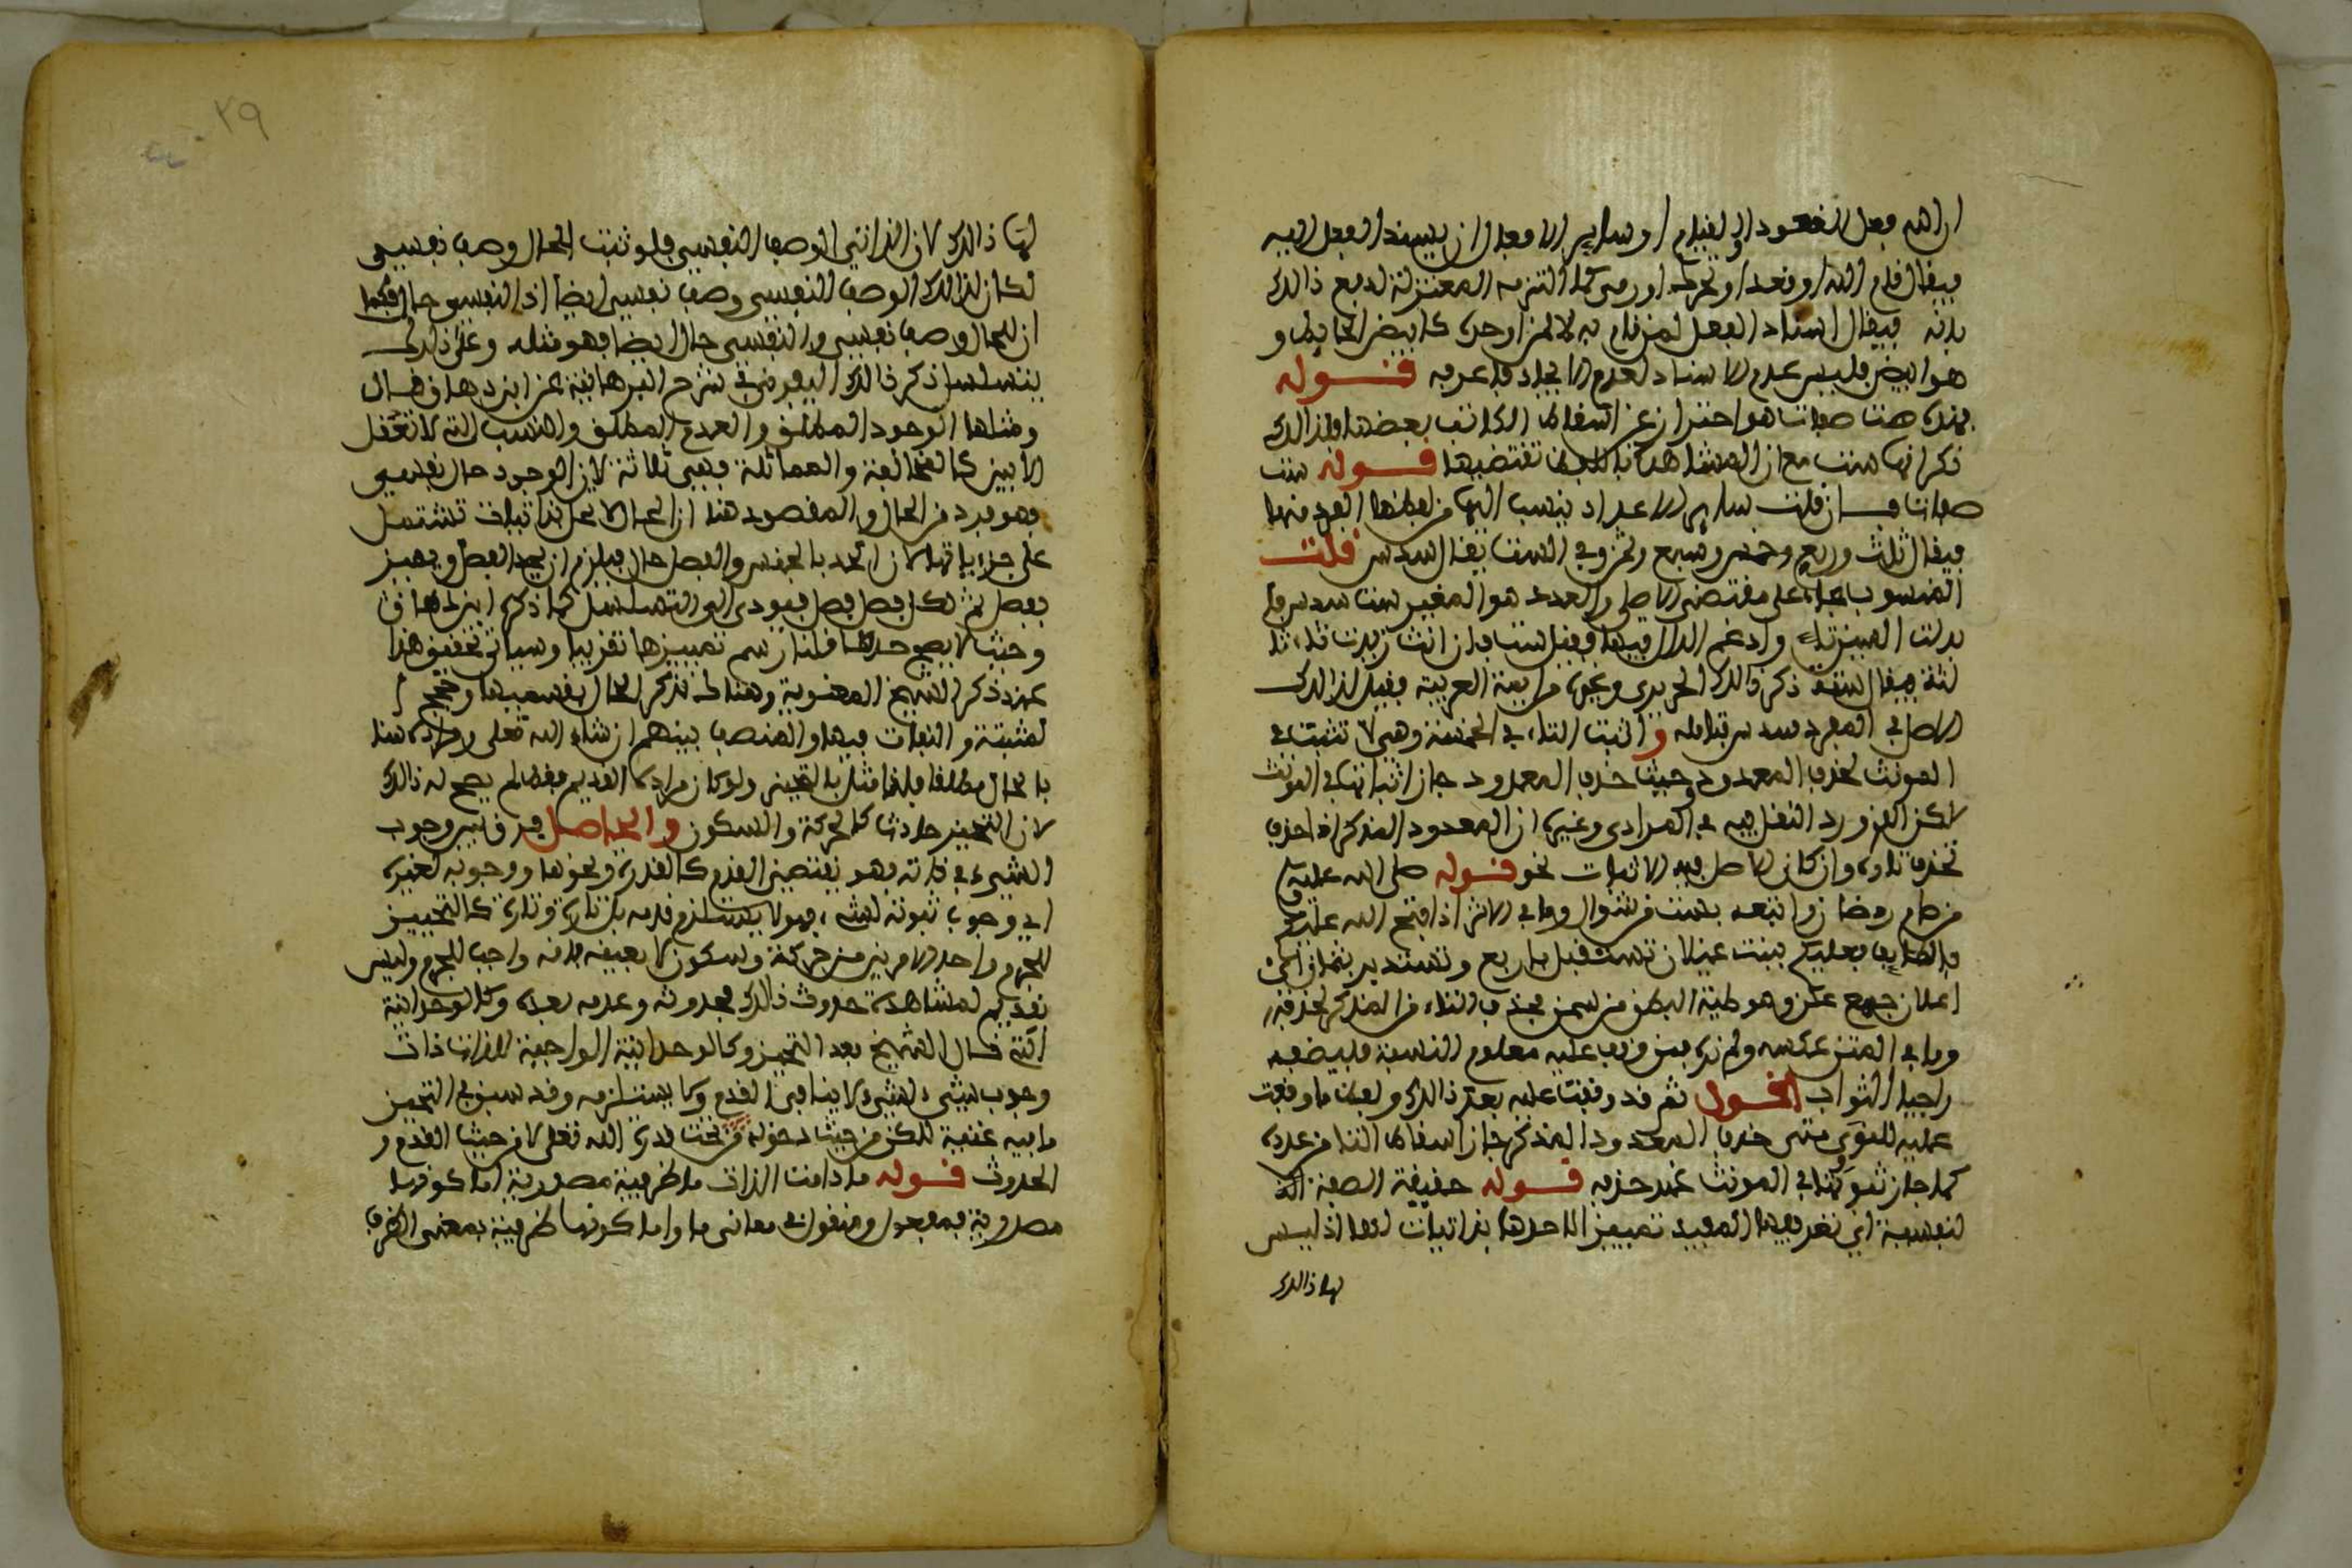 ان الله فعل القعود او القيام او ساير الافعال ان يسند الفعل اليه
فيقال قام الله او قعد او تحرك او رمى كما التزمه المعتزلة لدفع ذالك
بانه فيقال اسناد الفعل لمن قام به لا لمن اوجده كابيض الحايط و
هو ابيض فليس عدم الاسناد لعدم الايجاد فاعرفه قوله
فهذه ست صفات هو احتراز عن اسقاط الكاتب بعضها ولذالك
ذكر انها ست مع ان المشاهدة تقتضيها قوله ست
صفات فان قلت ساير الاعداد ينسب اليها من لفظها الفرد منها
فيقال ثلث وربع وخمس وسبع وثمن وفي الست يقال السدس قلت
المنسوب جاء على مقتضى الاصل والعدد هو المغير ست سدس فا
بدلت السين تاء وادغم الدال فيها فقيل ست فان انث زيدت تاء ثا
لثة فيقال ستة ذكر ذالك الحريري ونحوه من ايمة العربية فقيل لذالك
الاصل في المفرد سدس تامله واثبت التاء في الخمسة وهي لا تثبت في
المونث لحذف المعدود وحيث حذف المعدود جاز اثباتها في المونث
لاكن الذي ورد النقل به في المرادي وغيره ان المعدود المذكر اذا حذف
تحذف تاوه وان كان الاصل فيه الاثبات نحو قوله صلى الله عليه
من صام رمضان واتبعه بست من شوال وما في الاثر اذا فتح الله عليكم
الطايف فعليكم ببنت غيلان تستقبل باربع وتستدير بثمان اي
اعكان جمع عكن وهو طية البطن من سمن بحذف التاء من المذكر لحذفه
وما في المتن عكسه ولم نره فمن وقف عليه معلوم النسبة فليضفه
راجيا الثواب القول ثم قد وقفت عليه بعد ذالك ولفظ ما وقفت
عليه للنووي متى حذف المعدود المذكر جاز اسقاط التا من عدده
كما جاز ثبوتها في المونث عند حذفه قوله حقيقة الصفة ا
لنفسية اي تعريفها المفيد تمييز الا حدها بذاتيات لها اذ ليس
لها ذالك
لها ذالك لان الذاتي الوصف النفسي فلو ثبت الحال وصف نفسي
لكان لذالك الوصف النفسي وصف نفسي ايضا اذ النفسي حال فكما
ان للحال وصف نفسي والنفسي حال ايضا فهو مثله وعلى ذالك
يتسلسل ذكر ذالك اليفرني في شرح البرهانية عن ابن دهاق قال
ومثلها الوجود المطلق والعدم المطلق والنسب التي لا تعقل
الا بين كالمخالفة والمماثلة فهي ثلاثة لان الوجود حال نفسي
فهو فرد من الحال والمقصود هنا ان الحال لا يحل بذاتيات تشتمل
على جزءياتها لان الحد بالجنس والفصل حال فيلزم ان يحد الفصل ويميز
بفصل ثم لكل فصل فصل فيودي الى التسلسل كما ذكره ابن دهاق
وحيث لا يصح حدها فلنا رسم تمييزها تقريبا وسياتي تحقيق هذا
عند ذكر الشيخ المعنوية وهناك نذكر الحال بقسميها وحجج ا
لمثبتة والنفات فيها والمنصف بينهم ان شاء الله تعلى ومراده هنا
بالحال مطلقا فلذا مثل بالتحيز ولو كان مراده القديم فقط لم يصح له ذالك
لان التحيز حادث كالحركة والسكون والحاصل فرق بين وجوب
الشيء في ذاته فهو يقتضي القدم كالقدرة ونحوها ووجوبه لغيره
اي وجوب ثبوته لشيء فهو لا يستلزم قدمه بل تارة وتارة كالتحييز
للجرم واحد الامرين من حركة وسكون لا بعينه فانه واجب للجرم وليس
بقديم لمشاهدة حدوث ذالك بحدوثه وعدمه بعده وكالوحدانية
التي قال الشيخ بعد التحيز وكالوحدانية الواجبة لذات ذات
وجوب شيء لشيء لا ينافي القدم ولا يستلزمه وقد سبق في التحيز
ما فيه غنية لاكن من حيث دخوله تحت قدرة الله تعلى لا من حيث القدم و
الحدوث قوله ما دامت الذات ما ظرفية مصدرية اما كونها
مصدرية فمعجول ومنقول في معاني ما واما كونها ظرفية بمعنى الظرف
٢٩